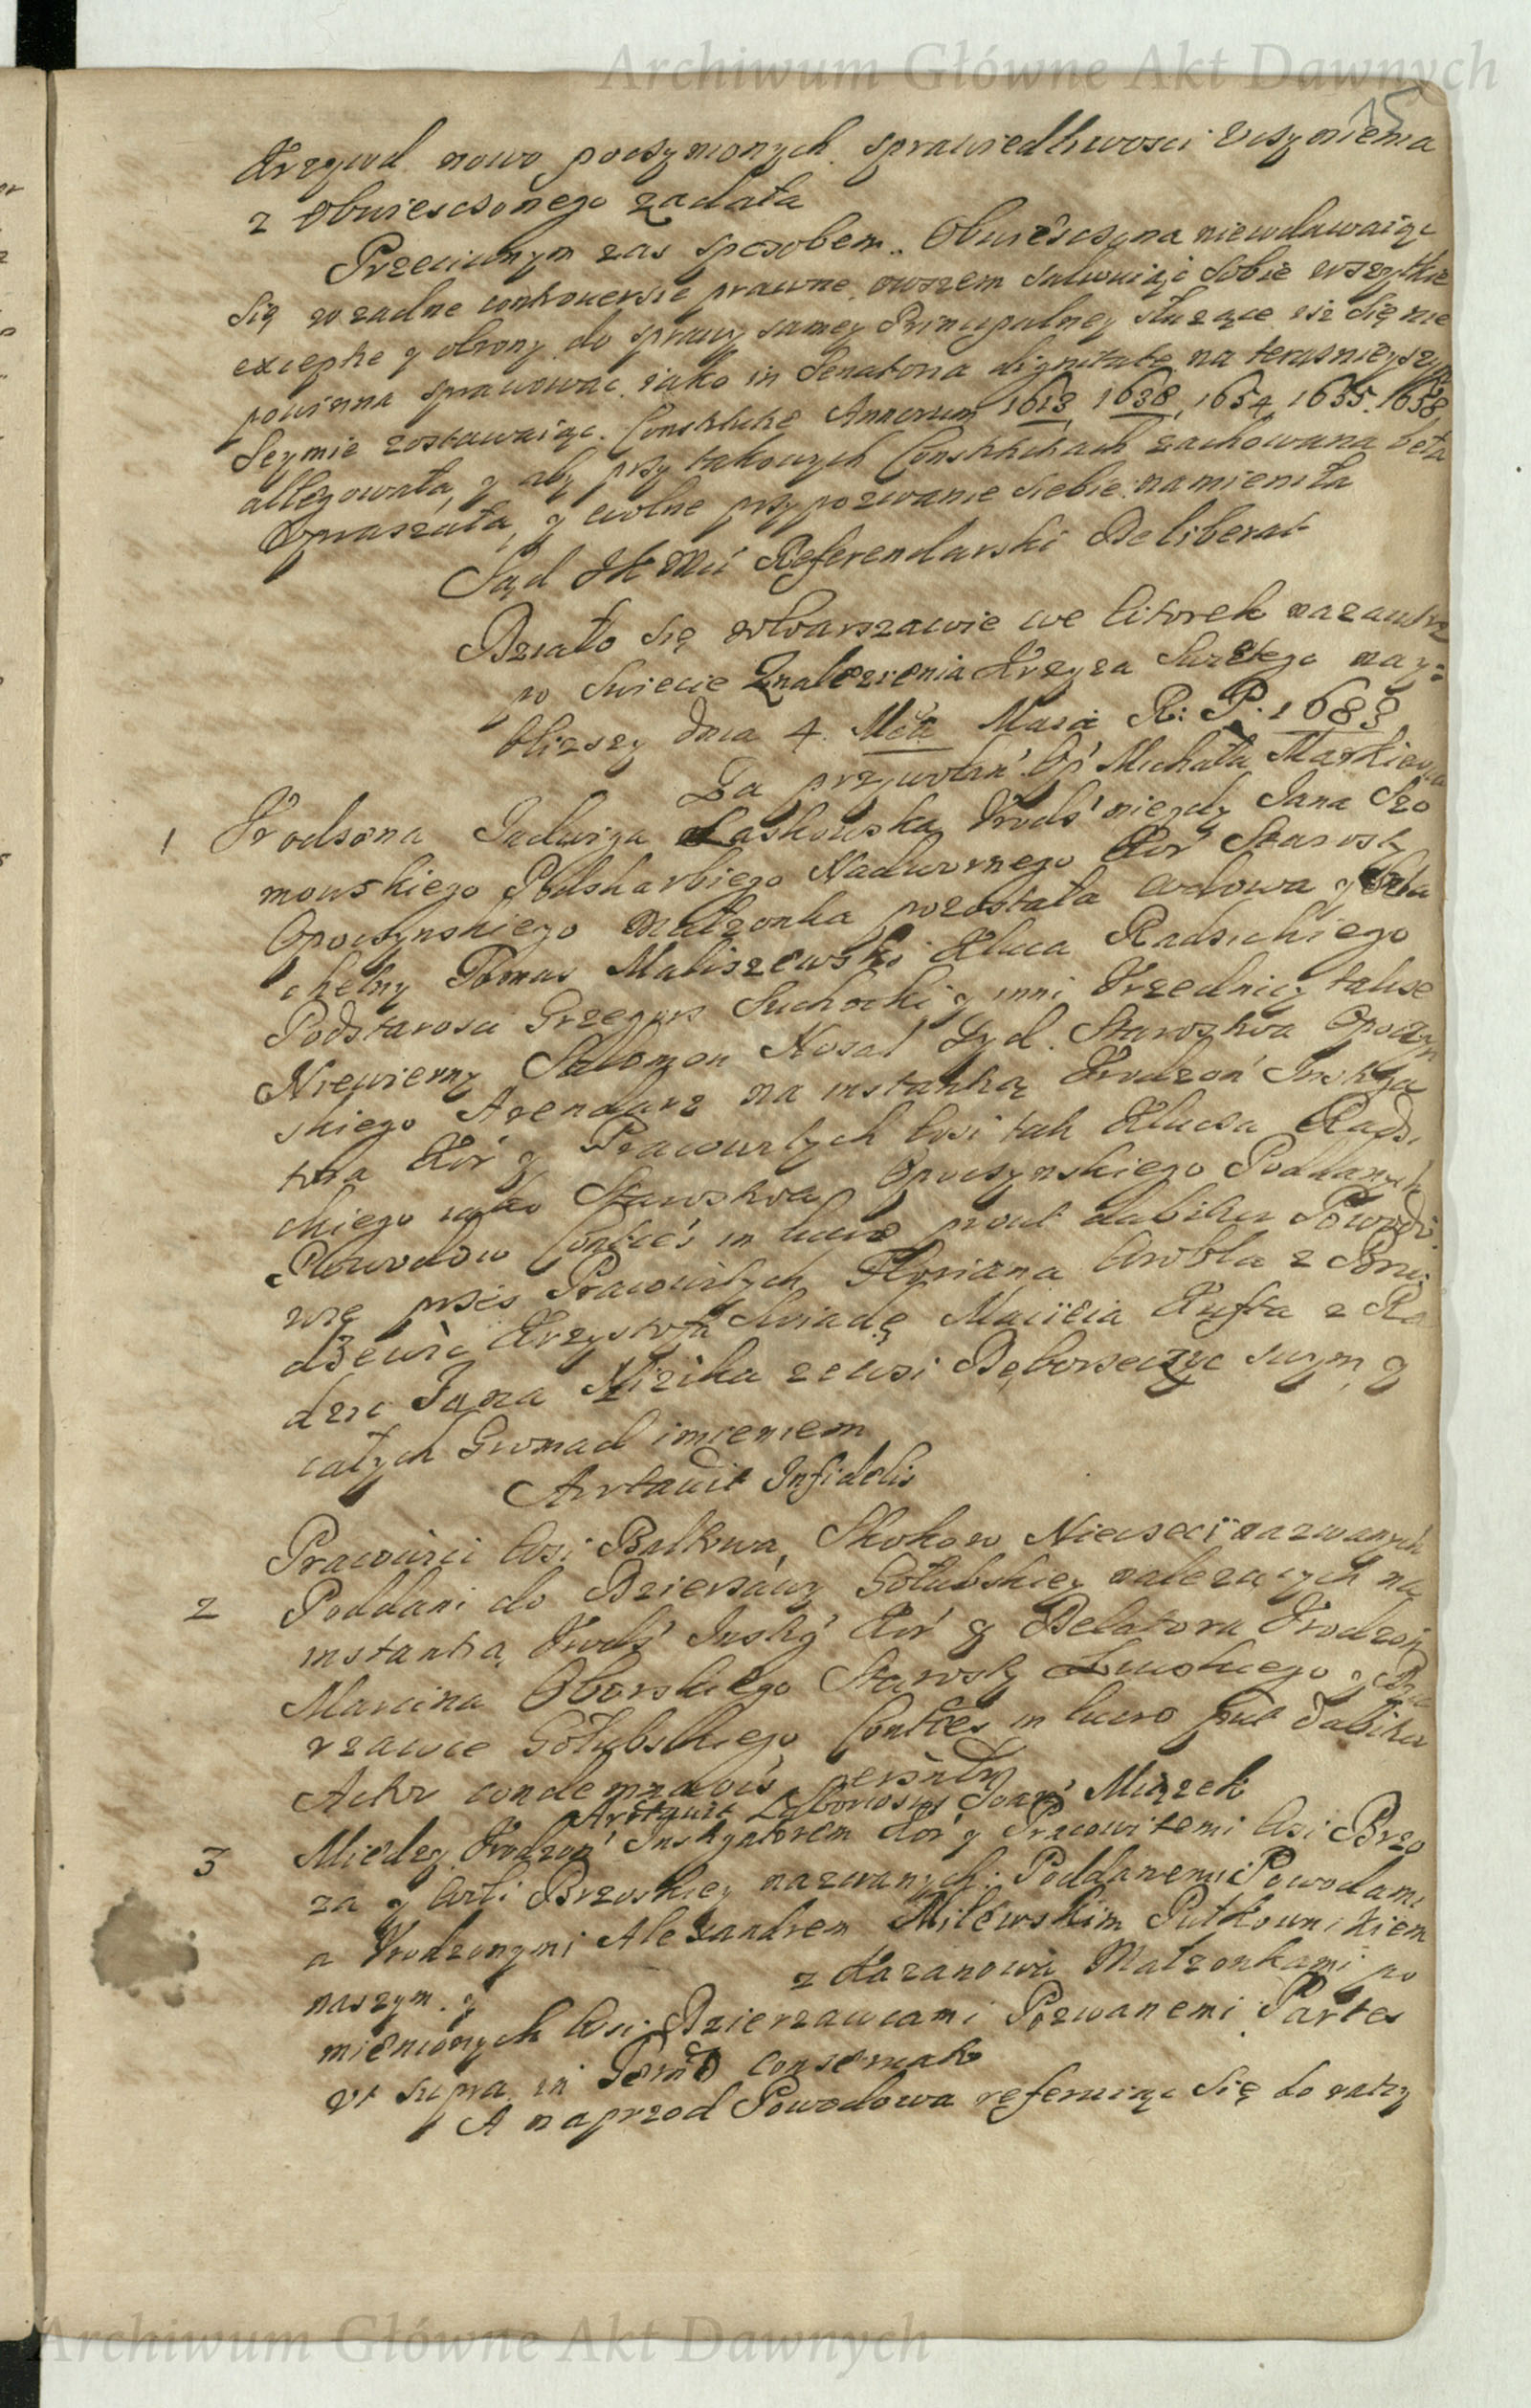 Archiwum Główne Akt Dawnych
15
Krzywd nowo poczynionych sprawiedliwosci uczynienia
z Obwiesczonego żądała
Przeciwnym zas sposobem Obwiesczona niewdawaiąc
się w zadne controuersie prawne owszem salwuiąc sobie wszytkie
exceptie y obrony do sprawy samey Principalney służące isz się nie
powinna sprawować iako in Senatoria dignitate na teraznieyszym
Seymie zostawaiąc Constitutie Annorum 1613, 1638, 1654, 1655, 1658
allegowała y aby przy takowych Constitutiach zachowana beła
upraszała, y wolne przypozwanie siebie namieniła
Sąd JK Mci Referendarski Deliberat
Działo się w Warszawie we Wtorek nazautrz
po Swiecie Znalezienia Krzyża Swiętego nay=
bliższy dnia 4. Mca Maia R: P. 1683
Za przywołań Oṕ Michała Maskiewi
1 Urodzona Jadwiga Laskowska Urodź niegdy Jana Szo
mowskiego Podskarbiego Nadwornego Kor Starosty
Opoczynskiego Małżonka pozostała wdowa y Szla
chetny Tomas Maliszewski Klucza Radzickiego
Podstarosci Grzegorz Suchocki y inni Urzednicy także
Niewierny Salomon Nosal Żyd Starostwa Opoczyn
skiego Arendarz na instantią Urodzoń Instiga
tora Kor y Pracowitych Wsi tak Klucza Radzi
ckiego iako Starostwa Opoczynskiego Poddanych
Powodow Conties in lucro prout dabitur Powodo
wie przes Pracowitych Floriana Wrobla z Bru
dzewic Krzysztofa Macieia Kusta z Ra
dzic Jana Nizika ze wsi Dęborzeczyc swym y
całych Gromad imieniem
Arrtauit Infidelis
2 Pracowici Wsi Bałtowa, Skokow Niecieci nazwanych
Poddani do Dzierżawy Gołubskiey należących na
instantią Urodź Instig Kor y Delatora Urodzoń
Marcina Oborskiego Starosty Liwskiego y Dzie
rzawce Gołubskiego Conties in lucro prout dabitur
Actor condemnauis
Arrtauit Laboriosus Joań Miązek
3 Miedzy Urodzoń Instygatorem Kor y Pracowitemi Wsi Brzo
za y Woli Brzoskiey nazwanych Poddanemi Powodami
a Urodzonymi Alexandrem Milewskim Pułkownikiem
naszym y z Kazanowa Małżonkami po
mienionych Wsi Dzierzawcami Pozwanemi Partes
vt supra in Termo conseruato
A naprzod Powodowa referuiąc się do
Archiwum Główne Akt Dawnych